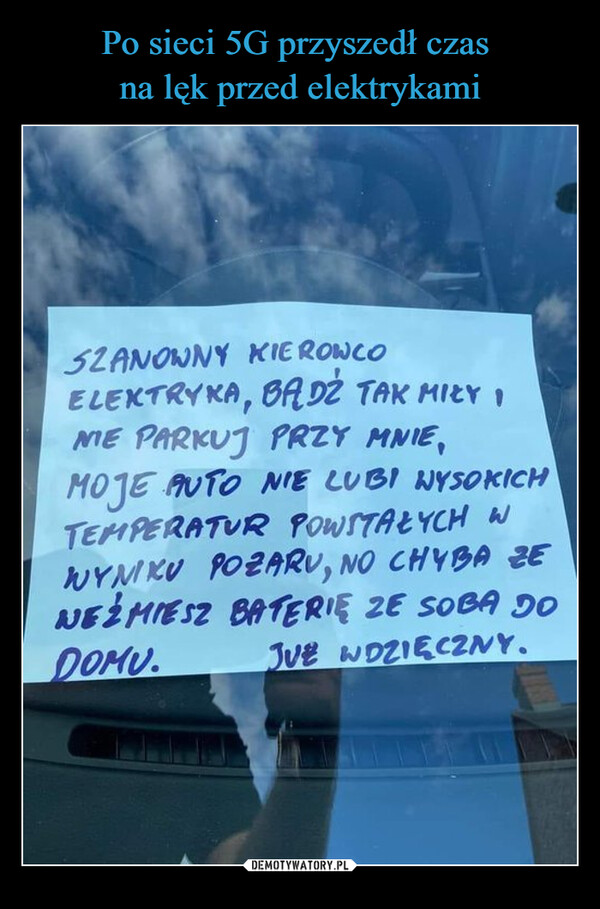 Po sieci 5G przyszedł czas
na lęk przed elektrykami
SZANOWNY KIEROWCO
ELEKTRYKA, BĄDŹ TAK MIŁY I
NIE PARKUJ PRZY MNIE,
MOJE AUTO NIE LUBI WYSOKICH
TEMPERATUR POWSTAŁYCH W
WYNIKU POŻARU, NO CHYBA ŻE
WEŹMIESZ BATERIĘ ZE SOBĄ DO
DOMU. JUŻ WDZIĘCZNY.
DEMOTYWATORY.PL